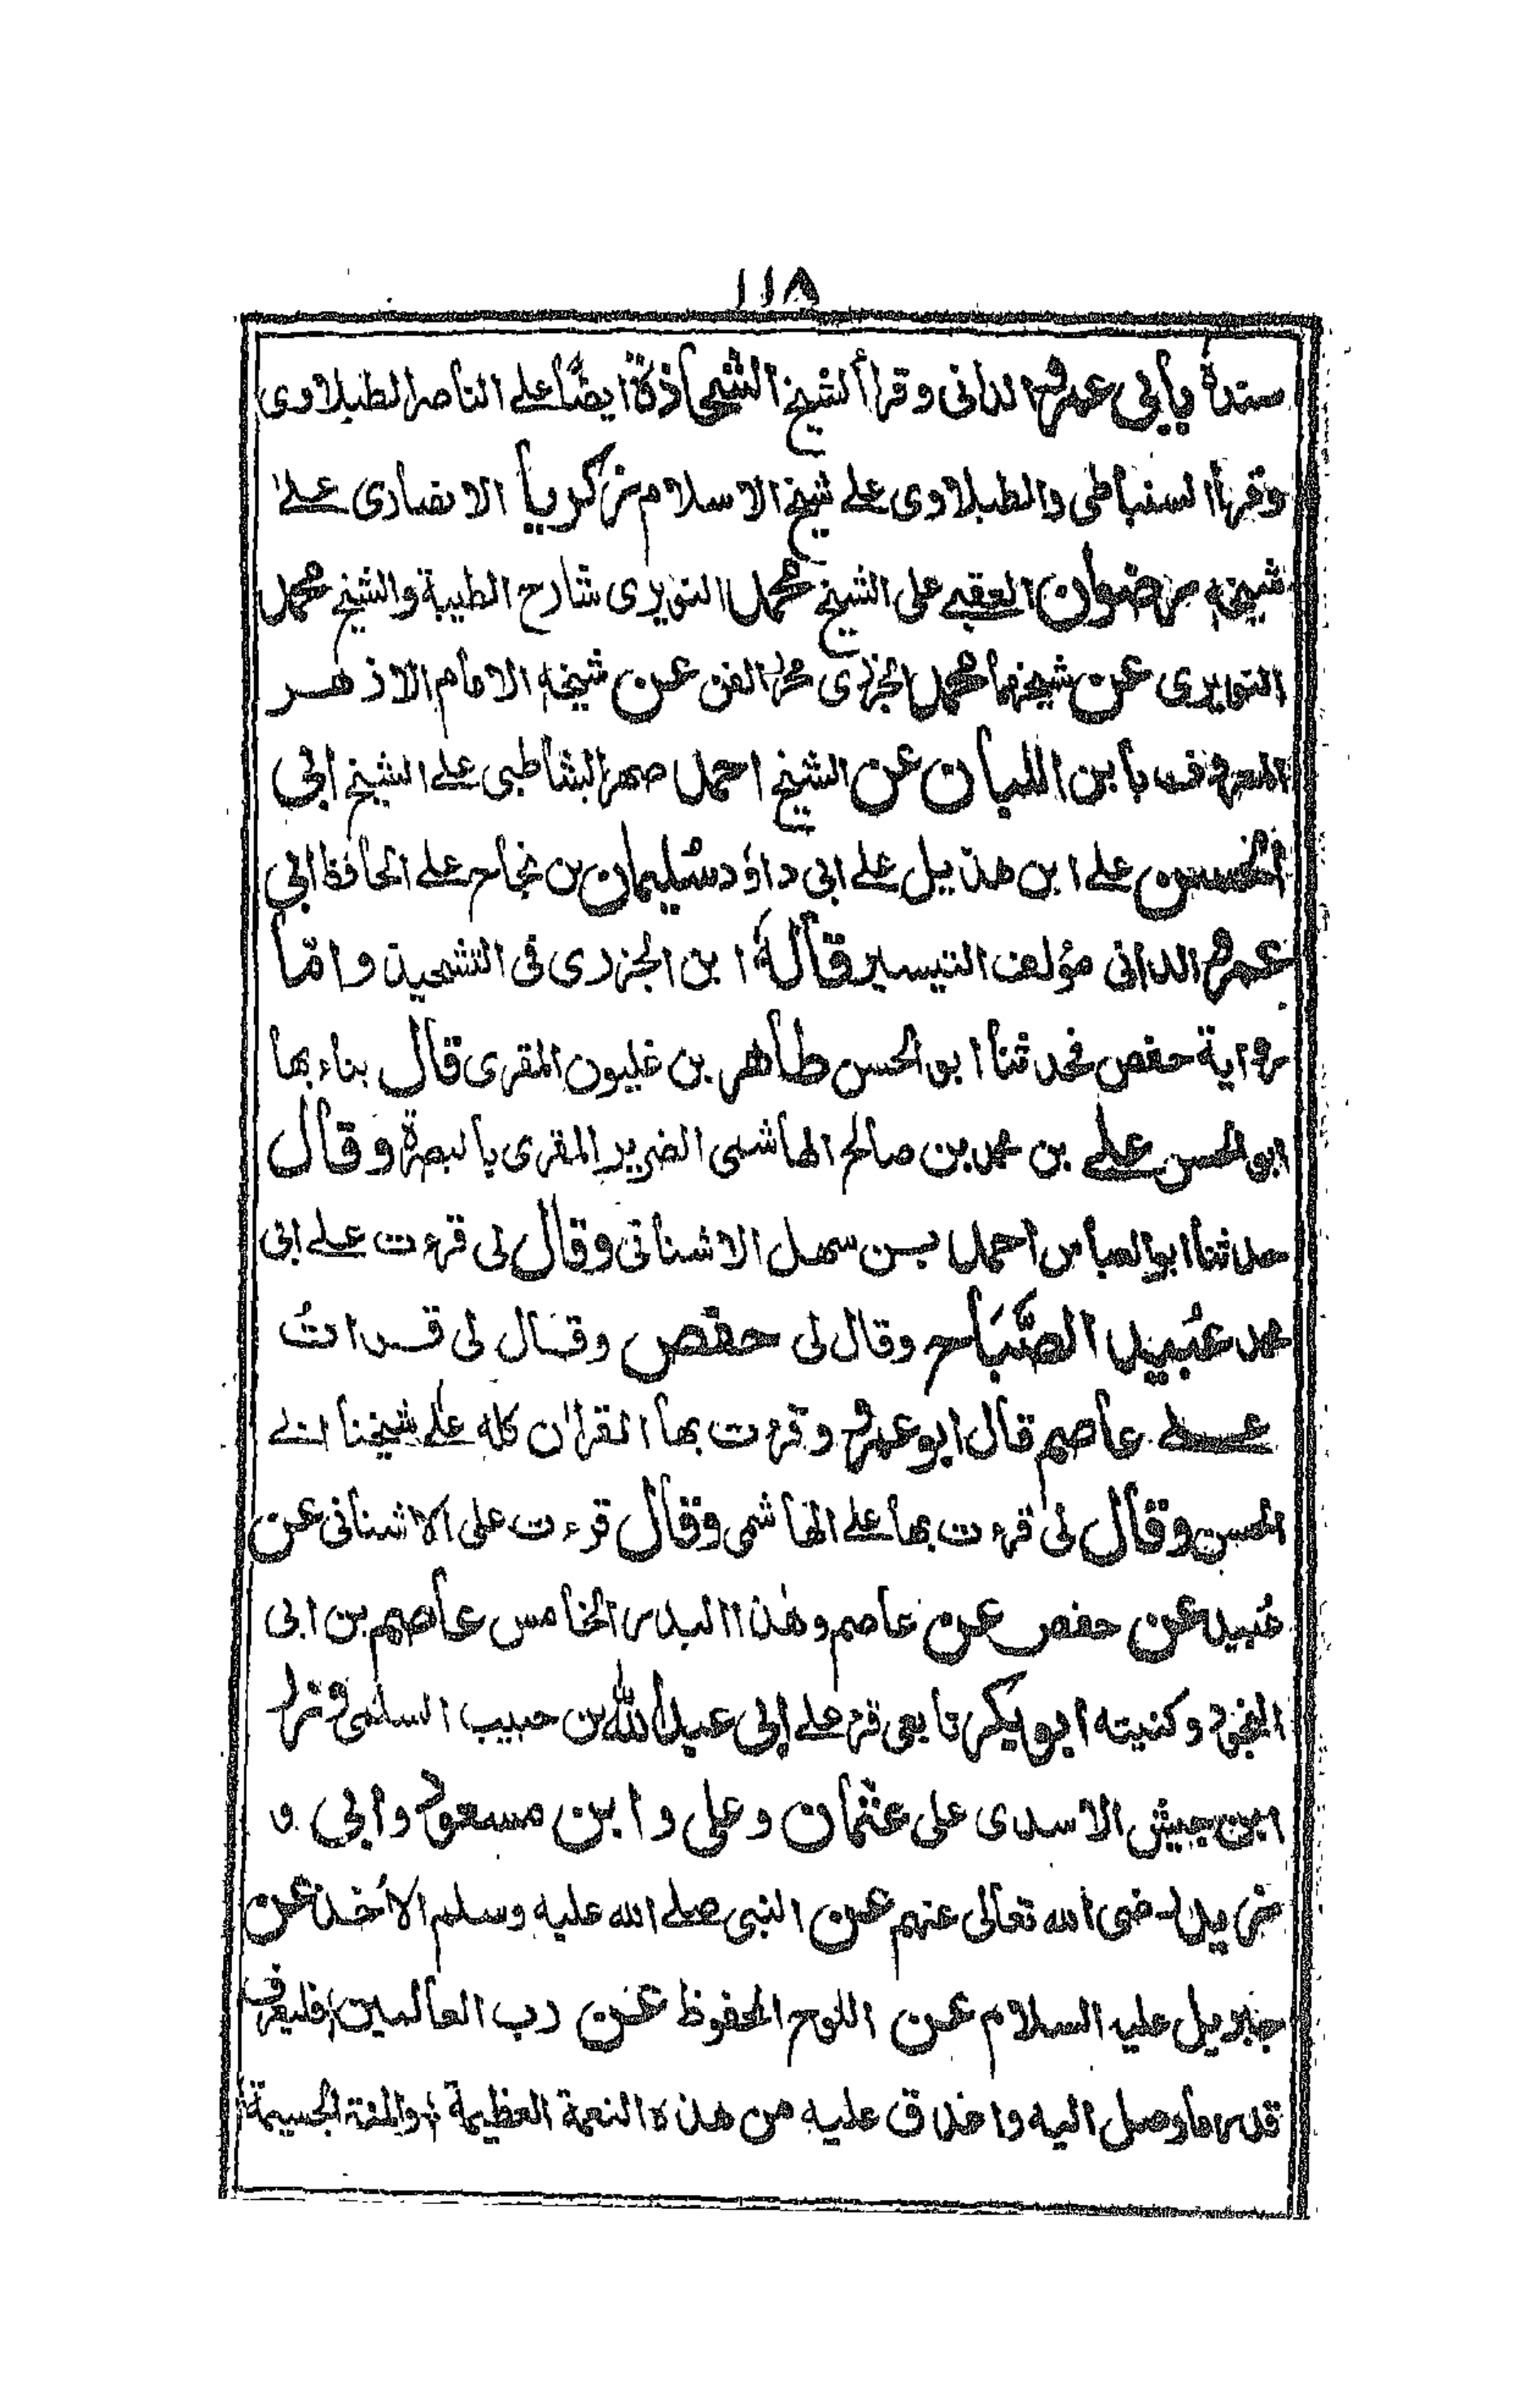 ١١٨
سندهٗ بأبی عمرو الدانی و قرأ الشیخ الشحاذة ایضًا علے الناصر الطبلاوی
وقرأ السنباطی والطبلاوی علے شیخ الاسلام زکریا الانصاری علے
شیخه رضوان العقبے علی الشیخ محمد النویری شارح الطیبة والشیخ محمد
النویری عن شیخهما محمد الجزری محرر الفن عن شیخه الامام الاذهر
المعروف بابن اللبان عن الشیخ احمد صهر الشاطبی علے الشیخ ابی
الحسن علے ابن هذیل علے ابی داؤد سُلیمان بن نجاح علے الحافظ ابی
عمرو الدانی مؤلف التیسیر قالهٗ ابن الجزری فی التشحید و امّا
روایة حفص فحدثنا ابو الحسن طاهر بن غلبون المقری قال بناء بها
ابو الحسن علے بن محمد بن صالح الهاشمی الضریر المقری بالبصرة وقال
حدثنا ابو العباس احمد بن سهل الاشنانی وقال لی قرءت علے ابی
محمد عُبید الصَّبَاح وقال لی حفص وقال لی قراتُ
علے عاصم قال ابو عمرو وقرءت بها القرآن کله علے شیخنا ابی
الحسن وقال لی قرءت بها علے الهاشمی وقال قرءت علی الاشنانی عن
عُبید عن حفص عن عاصم وهٰذا البدر الخامس عاصم بن ابی
النجود وکنیته ابو بکر تابعی قرء علے ابی عبد الله بن حبیب السلمی و زر
ابن حبیش الاسدی علی عثمان وعلی وابن مسعود وابی و
زید رضی الله تعالی عنهم عن النبی صلے الله علیه وسلم الاٰخذ عن
جبریل علیه السلام عن اللوح المحفوظ عن رب العالمین فلیعرف
قدر ما وصل الیه واغداق علیه من هذه النعمة العظیمة والمنة الجسیمة